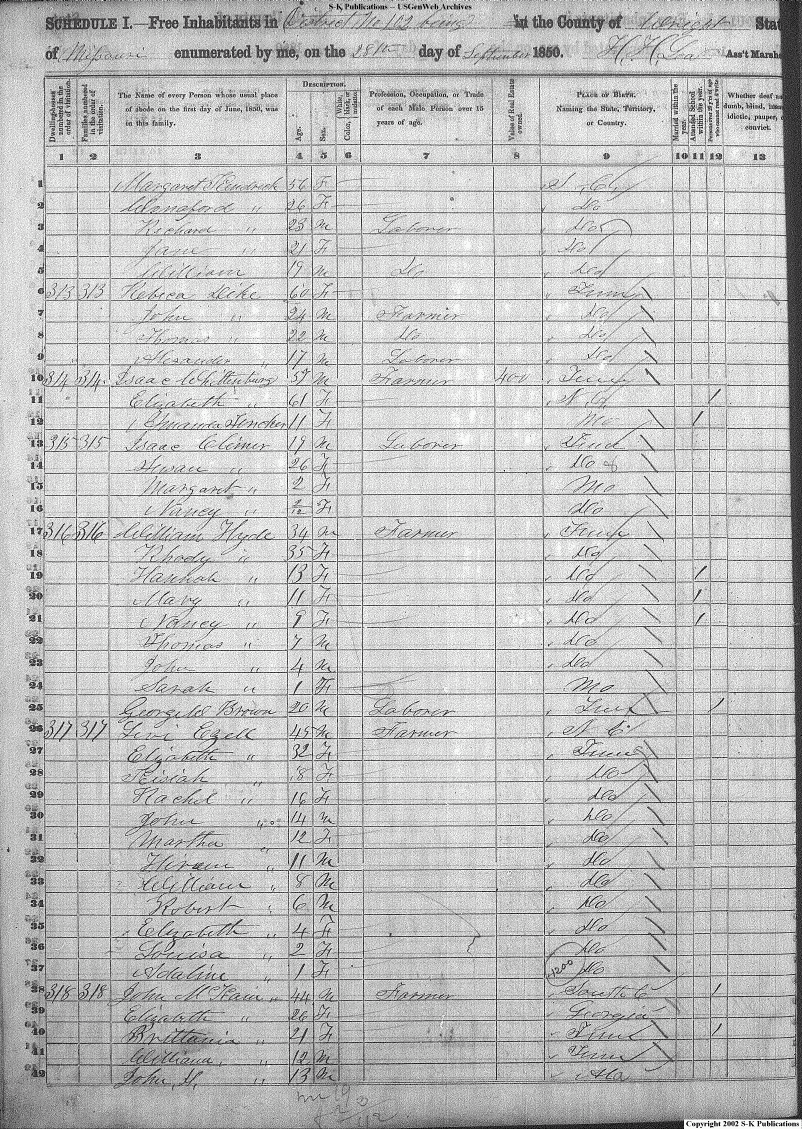 S-K Publications – USGenWeb Archives
SCHEDULE I.—Free Inhabitants in District No 102 being in the County of Wright State
of Missouri enumerated by me, on the 28th day of September 1850. H. H. Ass't Marsha
Dwelling-houses numbered in the order of visitation. Families numbered in the order of visitation. The Name of every Person whose usual place of abode on the first day of June, 1850, was in this family. DESCRIPTION. Age. Sex. Color, White, black, or mulatto. Profession, Occupation, or Trade of each Male Person over 15 years of age. Value of Real Estate owned. PLACE OF BIRTH. Naming the State, Territory, or Country. Married within the year. Attended School within the year. Whether deaf and dumb, blind, insane, idiotic, pauper, or convict.
1 2 3 4 5 6 7 8 9 10 11 12 13
1 Margaret 56 F
2 26 F Do
3 Richard " 23 M Laborer Do
4 Jane " 21 F Do
5 William 19 M Do Do
6 313 313 Rebeca Dike 60 F Tenn
7 John " 24 M Farmer Do
8 Thomas " 22 M Do Do
9 Alexander " 17 M Laborer Do
10 314 314 Isaac Whittenburg 57 M Farmer 400 Tenn
11 Elizabeth " 61 F N. C. /
12 11 F Mo /
13 315 315 Isaac Climer 19 M Laborer Tenn
14 Susan " 26 F Do
15 Margaret " 2 F Mo
16 Nancy " F Do
17 316 316 William Hyde 34 M Farmer Tenn
18 Rhody " 35 F Do
19 Hannah " 13 F Do /
20 Mary " 11 F Do /
21 Nancy " 9 F Do /
22 Thomas " 7 M Do
23 John " 4 M Do
24 Sarah " 1 F Mo
25 George Brown 20 M Laborer Tenn /
26 317 317 Levi Ezell 45 M Farmer N. C.
27 Elizabeth " 32 F Tenn
28 " 18 F Do
29 Rachel " 16 F Do
30 John " 14 M Do
31 Martha " 12 F Do
32 Hiram " 11 M Do
33 William " 8 M Do
34 Robert " 6 M Do
35 Elizabeth " 4 F Do
36 Louisa " 2 F Do
37 Adaline " 1 F 1200 Do
38 318 318 John McKain " 44 M Farmer South C /
39 Elizabeth " 26 F Georgia
40 Brittania " 21 F Tenn /
41 William " 12 M Tenn
42 John, H, " 13 M
Copyright 2002 S-K Publications